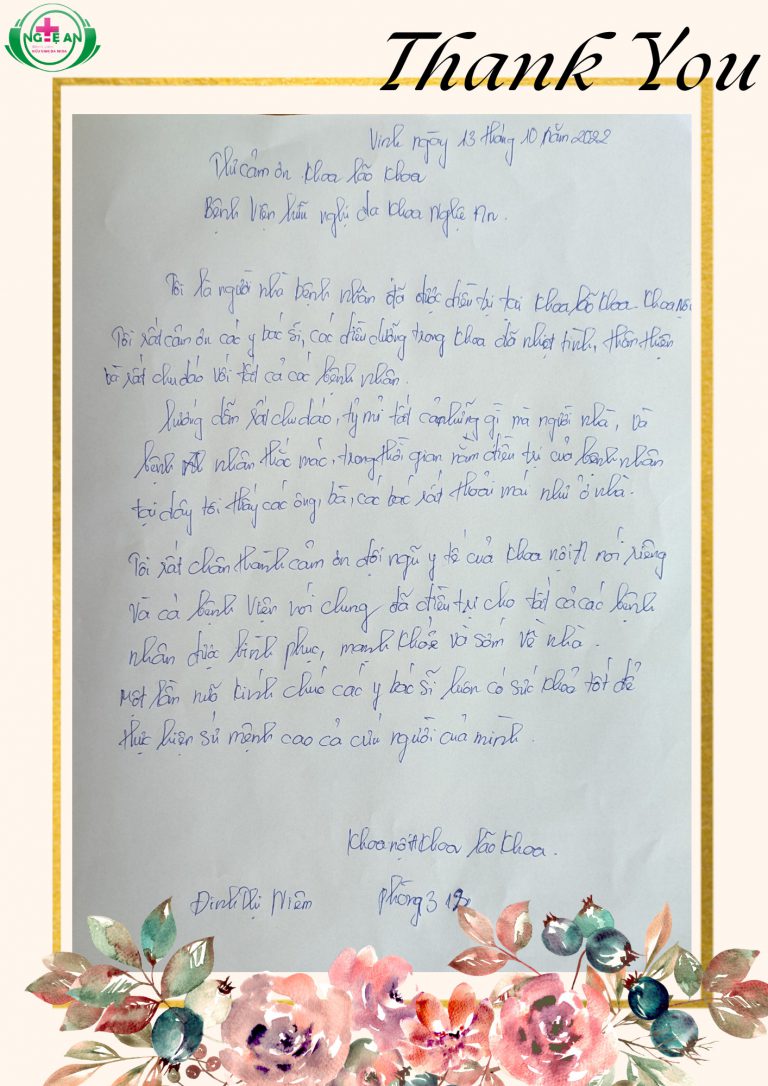 NGHỆ AN
Thank You
Vinh ngày 13 tháng 10 năm 2022
Thư cảm ơn Khoa Lão Khoa
Bệnh Viện hữu nghị đa khoa Nghệ An.
Tôi là người nhà bệnh nhân đã được điều trị tại Khoa Lão Khoa. Khoa Nội
Tôi rất cảm ơn các y bác sĩ, các điều dưỡng trong khoa đã nhiệt tình, thân thiện
và rất chu đáo với tất cả các bệnh nhân.
hướng dẫn rất chu đáo, tỷ mỉ tất cả những gì mà người nhà, và
bệnh nhân thắc mắc, trong thời gian nằm điều trị của bệnh nhân
tại đây tôi thấy các ông, bà, các bác rất thoải mái như ở nhà.
Tôi rất chân thành cảm ơn đội ngũ y tế của khoa nội A nói riêng
và cả bệnh viện nói chung đã điều trị cho tất cả các bệnh
nhân được bình phục, mạnh khỏe và sớm về nhà.
Một lần nữa kính chúc các y bác sĩ luôn có sức khỏe tốt để
thực hiện sứ mệnh cao cả cứu người của mình.
Khoa nội A Khoa Lão Khoa.
Đinh Thị Niêm phòng 3